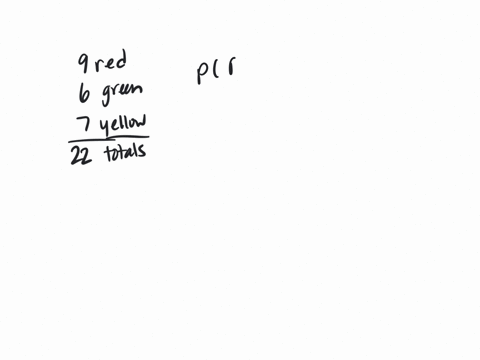 9 red
6 green
7 yellow
22 totals
P(